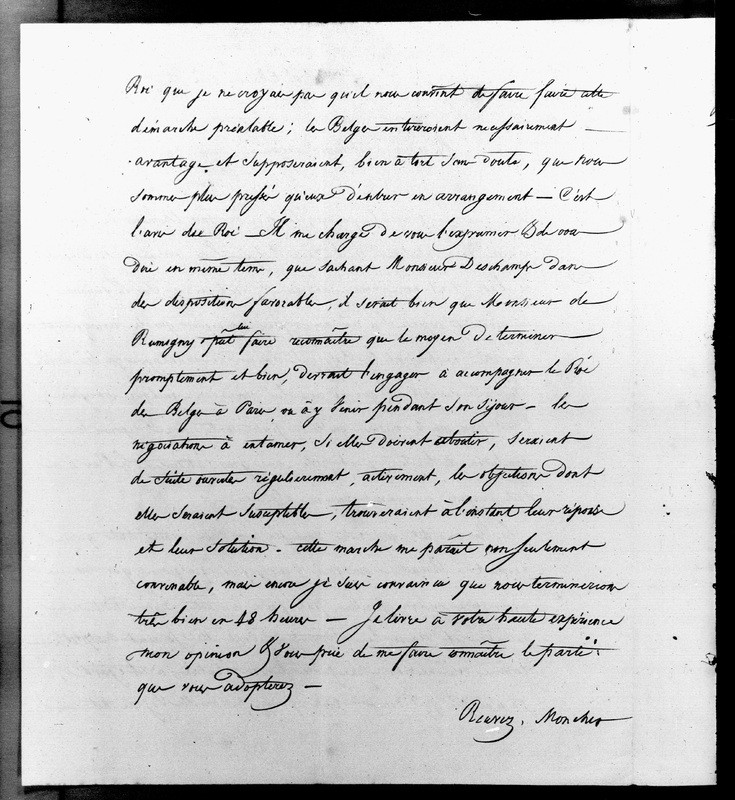 Roi que je ne croyais pas qu'il nous convînt de faire faire cette
démarche préalable; les Belges en tireroient nécessairement —
avantage, et supposeraient, bien à tort sans doute, que nous
sommes plus pressés qu'eux d'entrer en arrangement — C'est
l'avis du Roi — Il me charge de vous l'exprimer & de vous
dire en même tems, que sachant Monsieur Deschamps dans
des dispositions favorables, il serait bien que Monsieur de
Rumigny pût lui faire reconnaître que le moyen de terminer
promptement et bien, devrait l'engager à accompagner le Roi
des Belges à Paris ou à y venir pendant son séjour — les
négociations à entamer, si elles doivent aboutir, seraient
de suite ouvertes régulièrement, activement, les objections dont
elles seraient susceptibles, trouveraient à l'instant leur réponse
et leur solution — cette marche me parait non seulement
convenable, mais encore je suis convaincu que nous terminerions
très bien en 48 heures — Je livre à votre haute expérience
mon opinion & vous prie de me faire connaître le parti
que vous adopterez —
Recevez, Mon cher